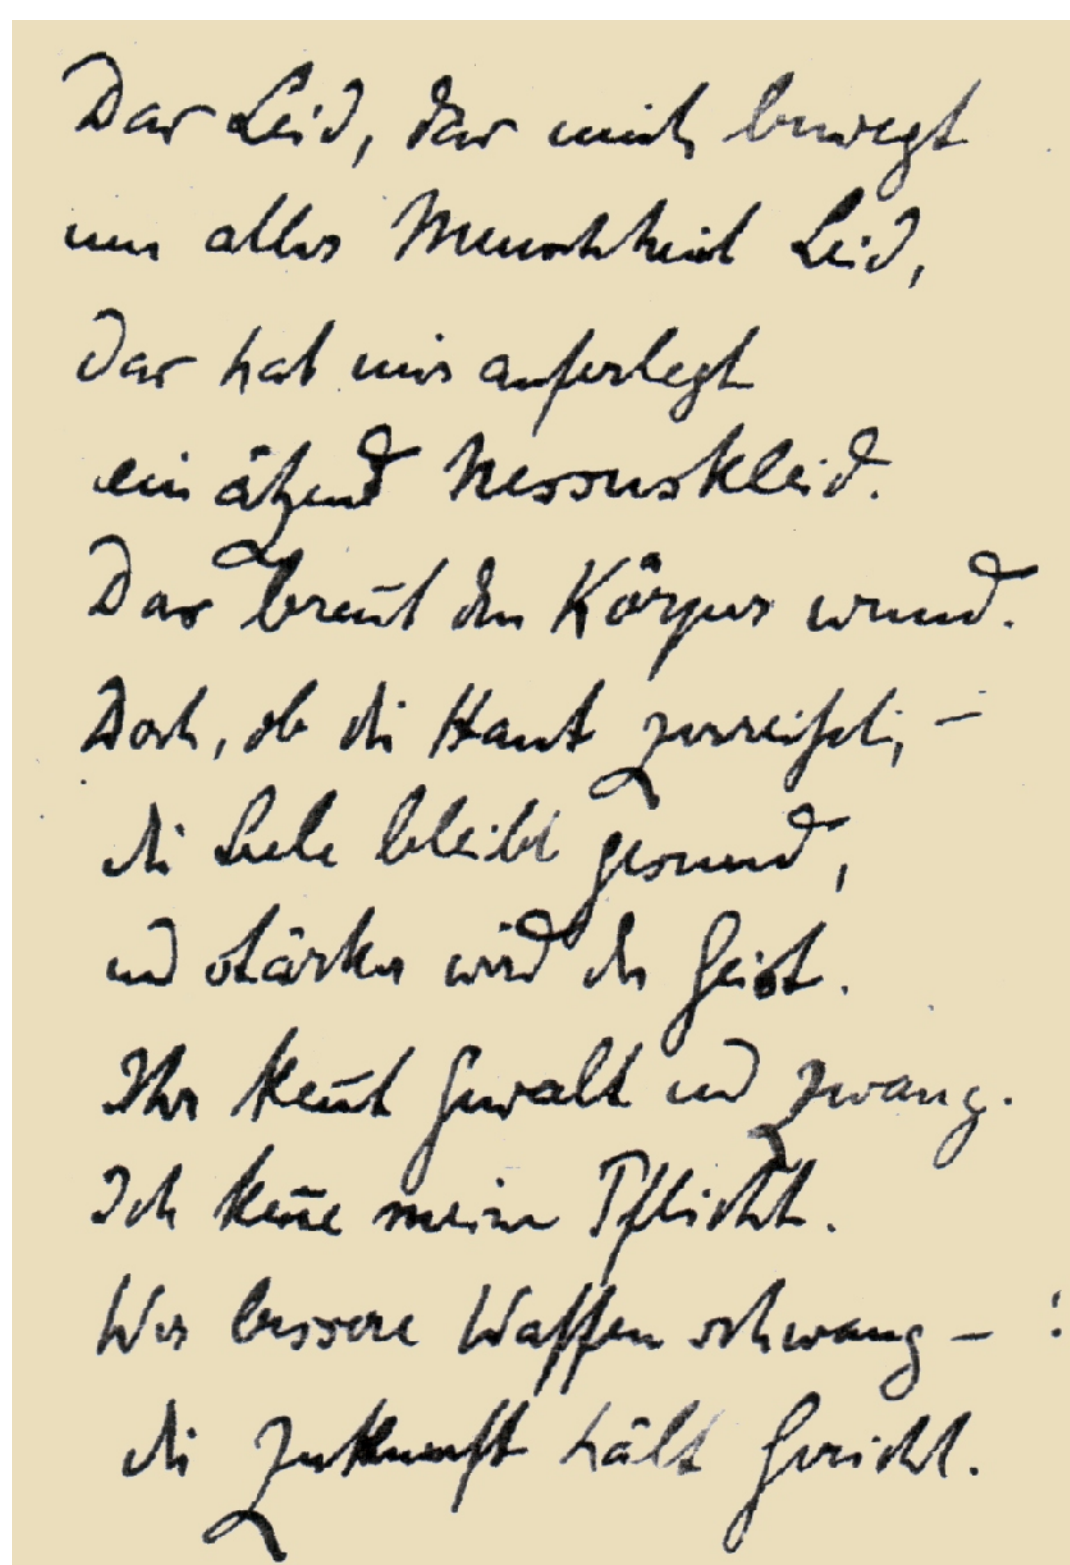 Das Leid, das mich bewegt
um aller Menschheit Leid,
das hat mir auferlegt
ein ätzend Nessuskleid.
Das breñt den Körper wund.
Doch, ob die Haut zerreißt, –
die Seele bleibt gesund,
und stärker wird der Geist.
Ihr keñt Gewalt und Zwang.
Ich keñe meine Pflicht.
Wer bessere Waffen schwang – :
die Zukunft hält Gericht.